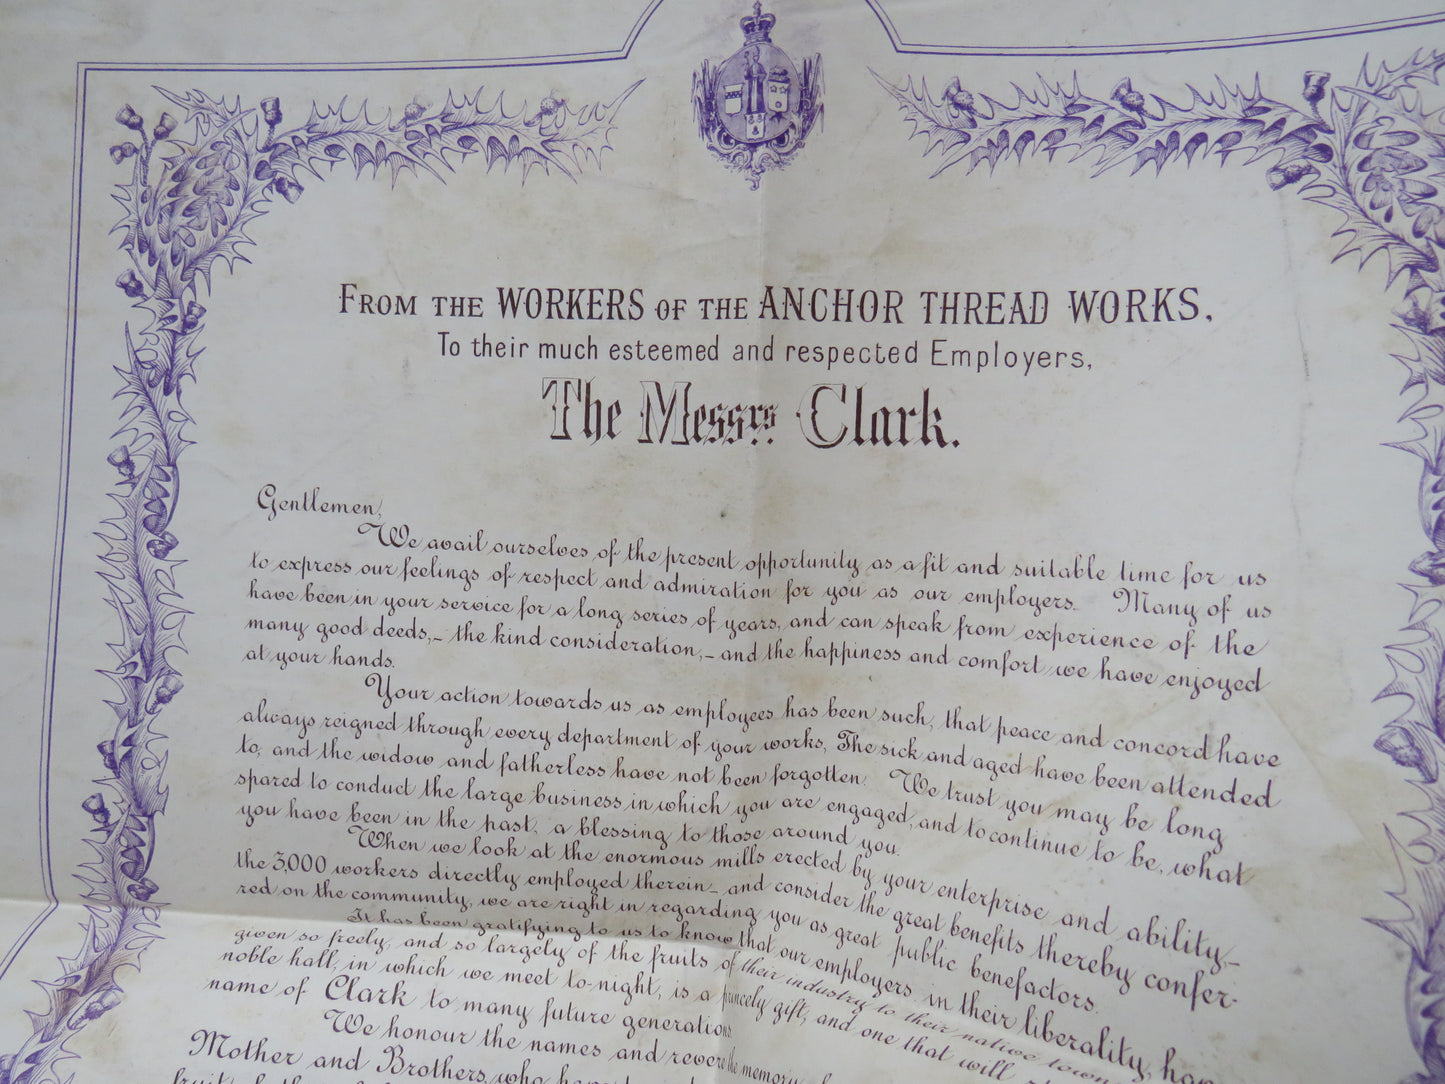 FROM THE WORKERS OF THE ANCHOR THREAD WORKS,
To their much esteemed and respected Employers,
The Messrs. Clark.
Gentlemen,
We avail ourselves of the present opportunity as a fit and suitable time for us
to express our feelings of respect and admiration for you as our employers. Many of us
have been in your service for a long series of years, and can speak from experience of the
many good deeds,– the kind consideration,– and the happiness and comfort we have enjoyed
at your hands.
Your action towards us as employees has been such, that peace and concord have
always reigned through every department of your works, The sick and aged have been attended
to, and the widow and fatherless have not been forgotten. We trust you may be long
spared to conduct the large business in which you are engaged, and to continue to be, what
you have been in the past, a blessing to those around you.
When we look at the enormous mills erected by your enterprise and ability,–
the 3,000 workers directly employed therein– and consider the great benefits thereby confer-
red on the community, we are right in regarding you as great public benefactors.
It has been gratifying to us to know that our employers in their liberality, have
given so freely, and so largely of the fruits of their industry to their native town
noble hall, in which we meet to-night, is a princely gift, and one that will
name of Clark to many future generations.
We honour the names and revere the memory
Mother and Brothers, who